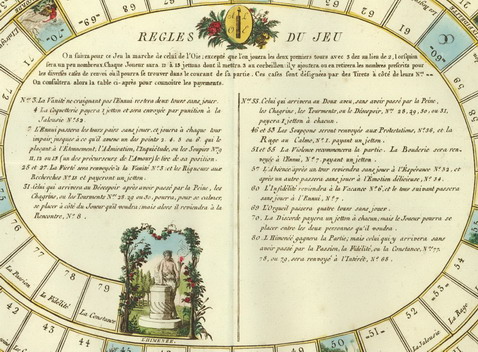 REGLES DU JEU
On suivra pour ce Jeu la marche de celui de l'Oie; excepté que l'on jouera les deux premiers tours avec 3 dez au lieu de 2, l'on
sera un peu nombreux. Chaque Joueur aura 12 à 15 jettons dont il mettra 3 au corbeillon: il y ajoutera ou en retirera les nombres prescrits pour
les diverses cases de renvoi où il pourra se trouver dans le courant de sa partie. Ces cases sont désignées par des Tirets à côté de leurs Nos --
On consultera alors la table ci-après pour connaitre les payements.
Nos 3. La Vanité ne craignant pas l'Ennui restera deux tours sans jouer.
4 La Coquetterie payera 1 jetton et sera envoyée par punition à la
Jalousie No 52.
7 L'Ennui passera les tours paire sans jouer, et jouera à chaque tour
impair jusqu'à ce qu'il amene un des points 3. 4. 5 ou 8. qui le
plaçant à l'Enivrement, l'Admiration, l'Inquiétude, ou les Soupirs Nos 10
11, 12 ou 15 (un des précurseurs de l'Amour) le tire de sa position.
25 et 27. La Fierté sera renvoyée à la Vanité No 3. et les Rigueurs aux
Recherches No 21 et payeront un jetton.
31. celui qui arrivera au Désespoir après avoir passé par la Peine, les
Chagrins, ou les Tourments Nos 28. 29 ou 30. pourra, pour se calmer,
se placer à côté du Joueur qu'il voudra: mais alors il reviendra à la
Rencontre, No 8.
Nos 33. Celui qui arrivera au Doux aveu, sans avoir passé par la Peine,
les Chagrins, les Tourments, ou le Désespoir, Nos 28, 29, 30, ou 31,
payera 1 jetton à chacun.
46 et 53 Les Soupçons seront renvoyés aux Protestations, No 36, et la
Rage au Calme, No 2. payant un jetton.
51 et 55 La Violence recommencera la partie. La Bouderie sera ren-
voyée à l'Ennui, No 7. payant un jetton.
57 L'Absence après un tour reviendra sans jouer à l'Espérance No 32, et
après un autre passera sans jouer à l'Emotion délicieuse, No 34.
60 L'Infidélité reviendra à la Vacance No 6, et le tour suivant passera
sans jouer à l'Ennui, No 7.
69 L'Orgueil passera quatre tours sans jouer.
70. La Discorde payera un jetton à chacun, mais le Joueur pourra se
placer entre les deux personnes qu'il voudra.
80 L'Himenée gagnera la Partie, mais celui qui y arrivera sans
avoir passé par la Passion, la Fidélité, ou la Constance, Nos 77.
78, ou 79, sera renvoyé à l'Intérêt, No 68.
L'HIMENÉE
77
78
79
La Passion
La Fidélité
La Constance
42
43
44
45
-46-
49
50
-51-
-52-
-53-
La Jalousie
La Rage
-70-
67
66
65
64
63
62
61
-60-